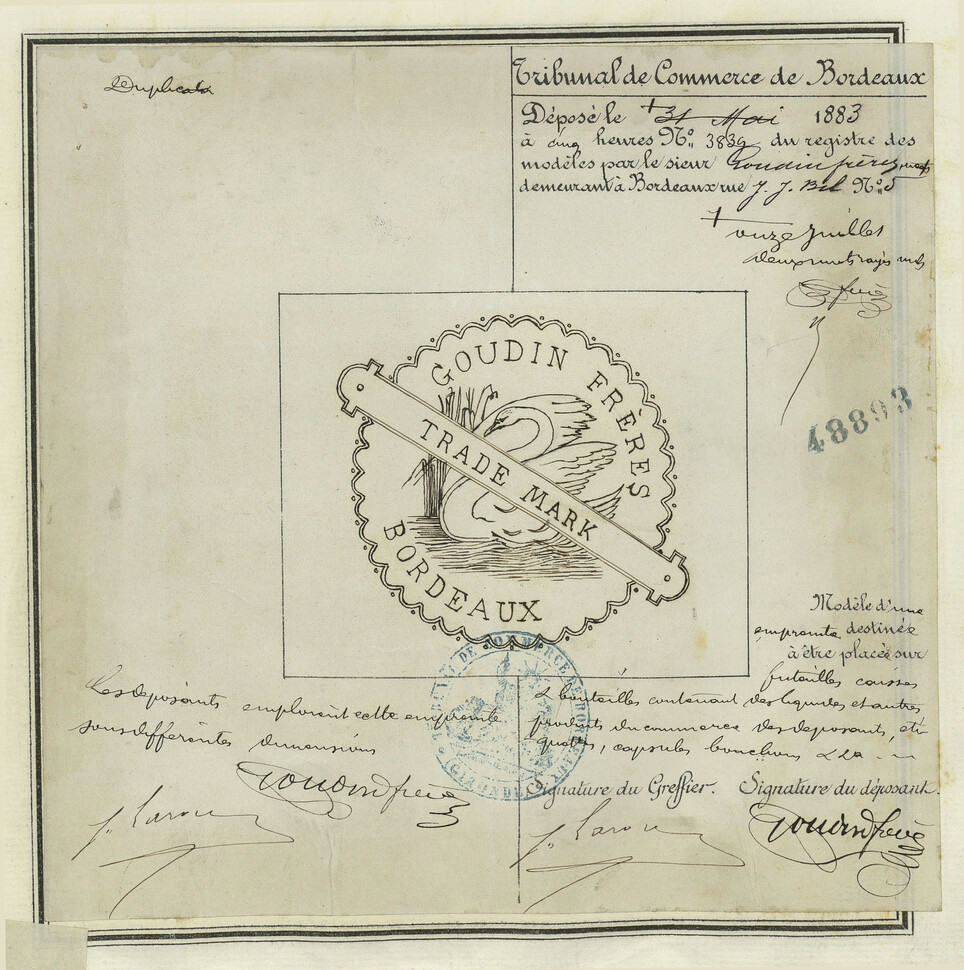 Duplicata
Tribunal de Commerce de Bordeaux
Déposé le + 31 Mai 1883
à cinq heures N° 3839 du registre des
modèles par le sieur Goudin frères
demeurant à Bordeaux rue J. J. Bel N° 5
+ onze Juillet
deux mots rayés nuls
48893
GOUDIN FRÈRES
TRADE MARK
BORDEAUX
Modèle d'une
empreinte destinée
à être placée sur
futailles caisses
& bouteilles contenant des liquides et autres
produits du commerce des déposants, éti-
quettes, capsules bouchons &&a
Les déposants emploient cette empreinte
sous différentes dimensions
TRIBUNAL DE COMMERCE DE BORDEAUX
(GIRONDE)
Signature du Greffier. Signature du déposant.